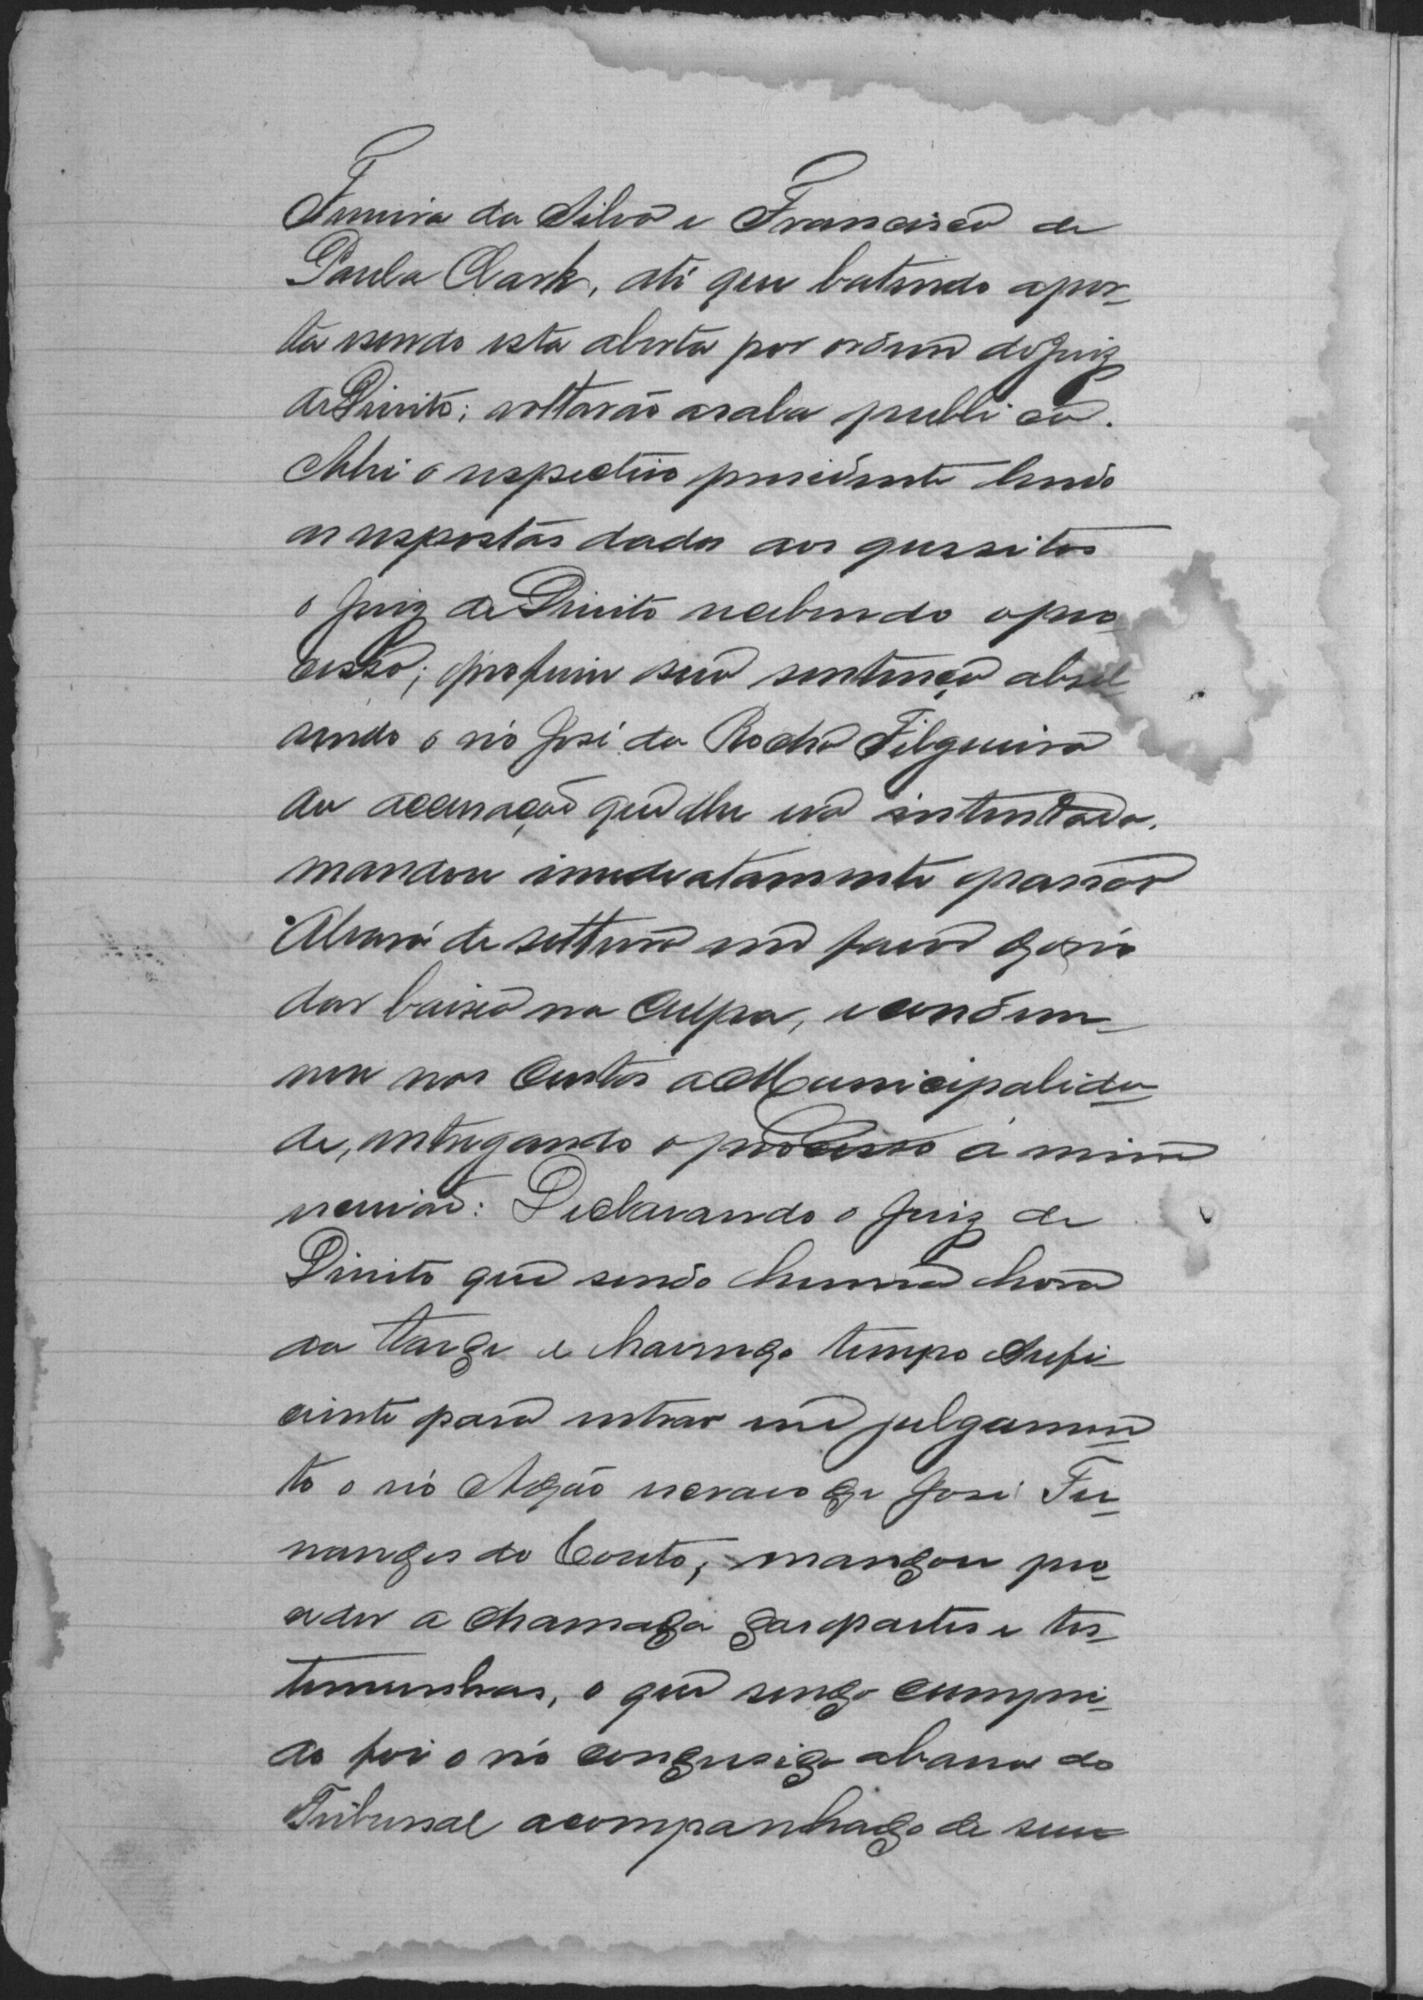 Ferreira da Silva e Francisco de
Paula Clark, até que batendo a por-
ta esendo esta aberta por ordem do Juiz
de Direito; voltarão a sala publica.
Ahi o respectivo presidente lendo
as respostas dadas aos quesitos
o Juiz de Direito recebendo o pro-
cesso; proferiu sua sentença absol-
vendo o réo José da Rocha Filgueira
da accusação que lhe era intentada.
mandou immediatamente passar
Alvará de soltura em favor do réo
dar baixa na culpa, e condem-
nou nas Custas a Municipalida-
de, entregando o processo á mim
escrivão: Declarando o Juiz de
Direito que sendo huma hora
da tarde e havendo tempo sufi-
ciente para entrar em julgamen-
to o réo Adão escravo de José Fer-
nandes do Couto, mandou pro-
ceder a chamada das partes e tes-
temunhas, o que sendo cumpri-
do foi o réo condusido a barra do
Tribunal acompanhado de seu